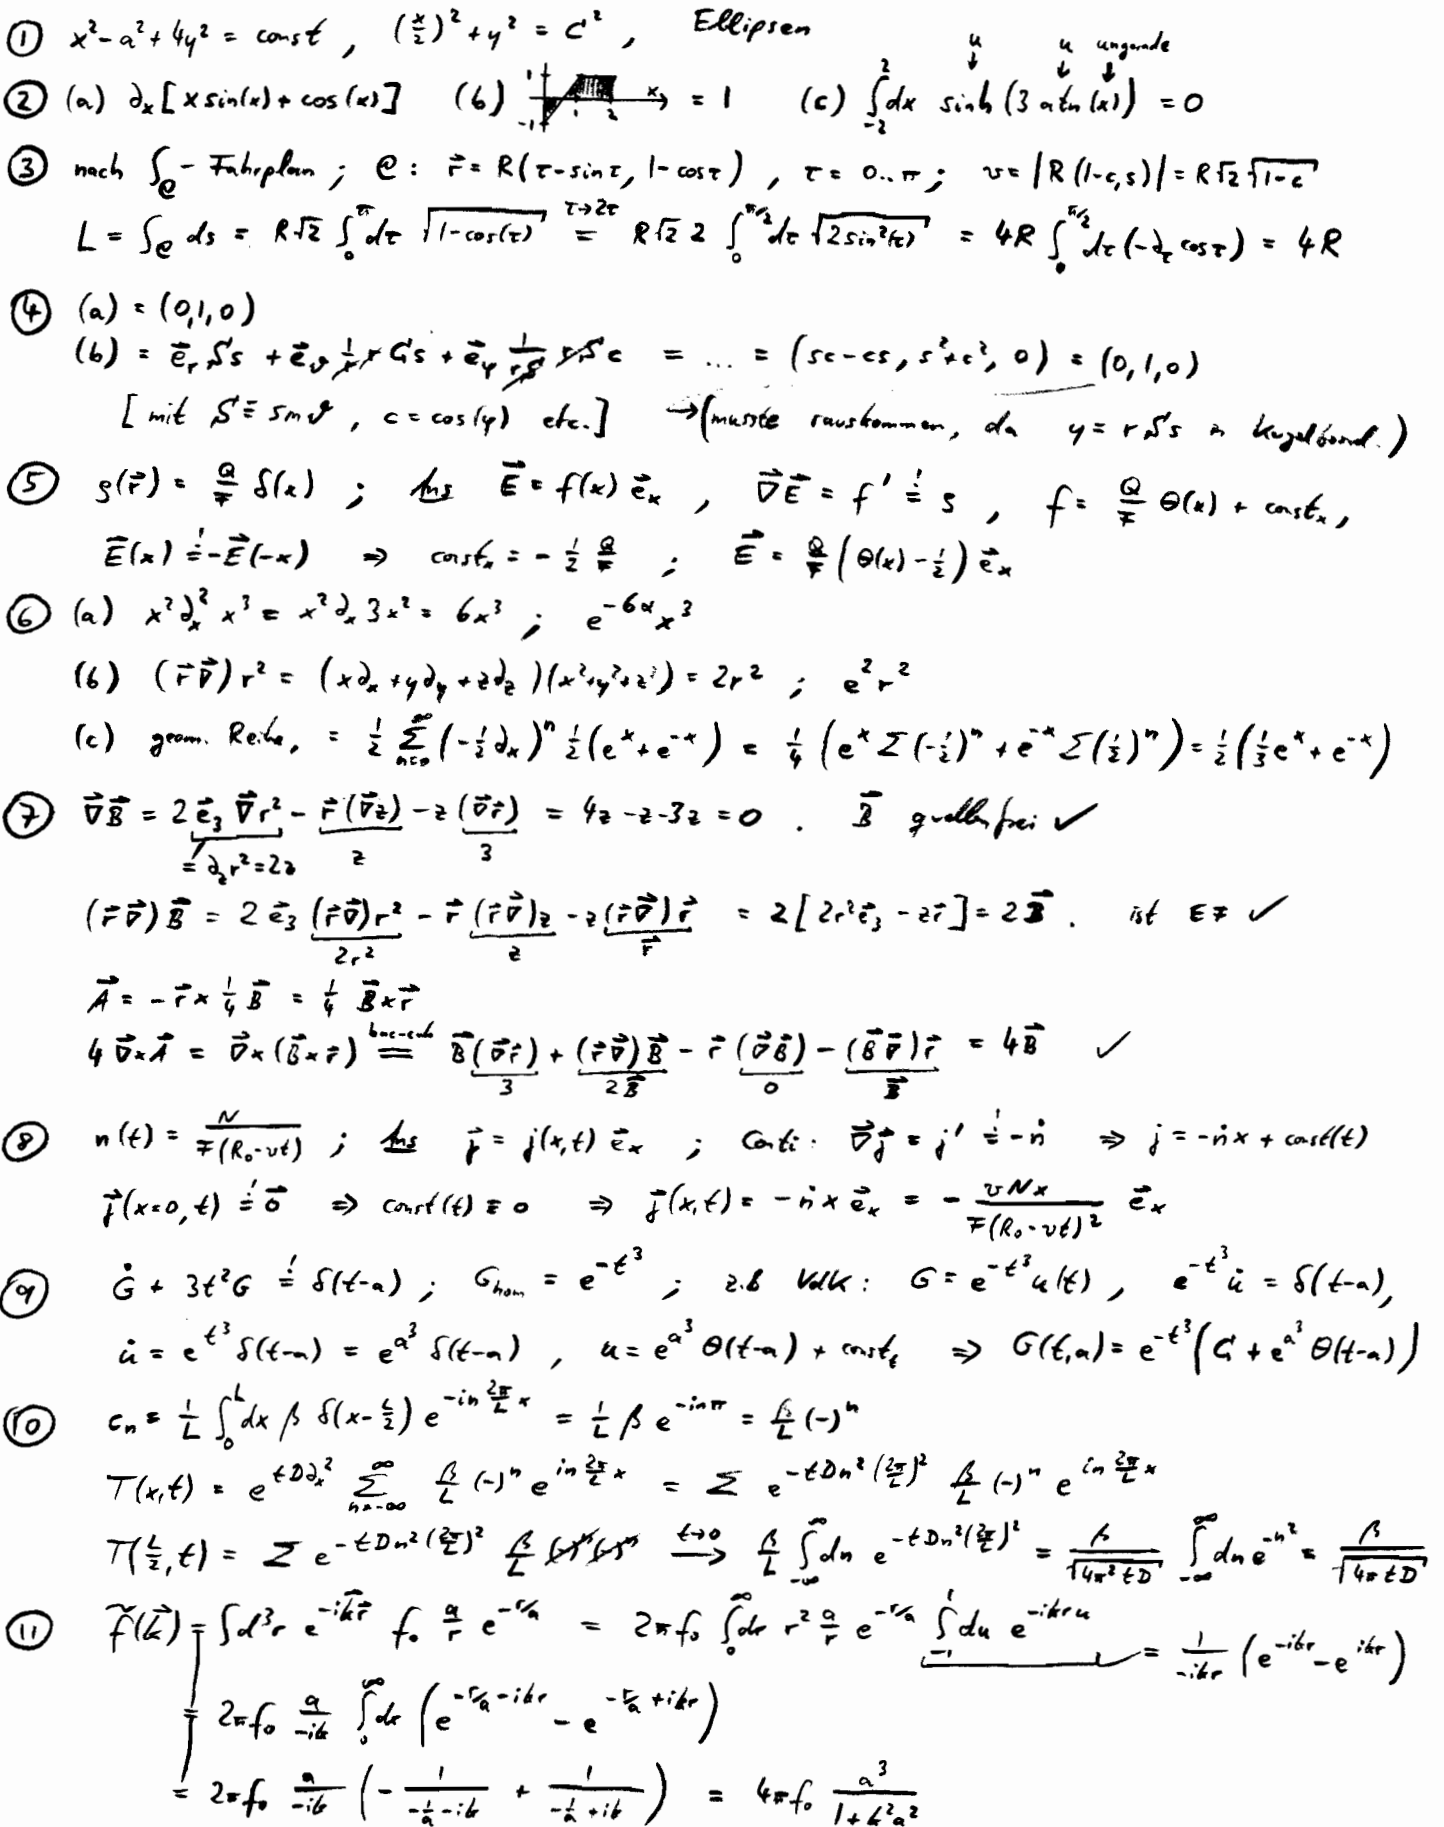 ① x² - a² + 4y² = const , (x/2)² + y² = C² , Ellipsen
② (a) ∂ₓ [x sin(x) + cos(x)] (b) 1 -1 1 2 x = 1 (c) ∫₋₂² dx sinh (3 atn(x)) = 0 u u ungerade
③ nach ∫_C - Fahrplan ; C : r⃗ = R(τ - sin τ, 1 - cos τ) , τ = 0..π ; v = |R(1-c, s)| = R√2 √(1-c)
L = ∫_C ds = R√2 ∫₀^π dτ √(1-cos(τ)) =^(τ→2τ) R√2 2 ∫₀^(π/2) dτ √(2 sin²(τ)) = 4R ∫₀^(π/2) dτ (-∂_τ cos τ) = 4R
④ (a) = (0,1,0)
(b) = e⃗_r S s + e⃗_ϑ 1/r r C s + e⃗_φ 1/(rS) r S c = ... = (sc - cs, s² + c², 0) = (0, 1, 0)
[mit S ≡ sin ϑ , c = cos(φ) etc.] → (musste rauskommen, da y = r S s in Kugelkoord.)
⑤ ρ(r⃗) = Q/F δ(x) ; Ans E⃗ = f(x) e⃗ₓ , ∇⃗E⃗ = f' =! ρ , f = Q/F Θ(x) + constₓ ,
E⃗(x) =! -E⃗(-x) ⇒ constₓ = - 1/2 Q/F ; E⃗ = Q/F (Θ(x) - 1/2) e⃗ₓ
⑥ (a) x² ∂ₓ² x³ = x² ∂ₓ 3x² = 6x³ ; e^(-6α) x³
(b) (r⃗∇⃗) r² = (x∂ₓ + y∂_y + z∂_z)(x² + y² + z²) = 2r² ; e² r²
(c) geom. Reihe, = 1/2 Σ_(n=0)^∞ (-1/2 ∂ₓ)ⁿ 1/2 (eˣ + e⁻ˣ) = 1/4 (eˣ Σ(-1/2)ⁿ + e⁻ˣ Σ(1/2)ⁿ) = 1/2 (1/3 eˣ + e⁻ˣ)
⑦ ∇⃗B⃗ = 2 e⃗₃ ∇⃗r² - r⃗(∇⃗z) - z(∇⃗r⃗) = 4z - z - 3z = 0 . B⃗ quellenfrei ✓
= ∂_z r² = 2z z 3
(r⃗∇⃗) B⃗ = 2 e⃗₃ (r⃗∇⃗) r² - r⃗ (r⃗∇⃗) z - z (r⃗∇⃗) r⃗ = 2 [2r² e⃗₃ - z r⃗] = 2B⃗ . ist EF ✓
2r² z r⃗
A⃗ = - r⃗ × 1/4 B⃗ = 1/4 B⃗ × r⃗
4 ∇⃗×A⃗ = ∇⃗×(B⃗×r⃗) =^(bac-cab) B⃗(∇⃗r⃗) + (r⃗∇⃗)B⃗ - r⃗(∇⃗B⃗) - (B⃗∇⃗)r⃗ = 4B⃗ ✓
3 2B⃗ 0 B⃗
⑧ n(t) = N/(F(R₀-vt)) ; Ans j⃗ = j(x,t) e⃗ₓ ; Conti : ∇⃗j⃗ = j' =! -ṅ ⇒ j = -ṅx + const(t)
j⃗(x=0, t) =! 0⃗ ⇒ const(t) = 0 ⇒ j⃗(x,t) = -ṅ x e⃗ₓ = - vNx/(F(R₀-vt)²) e⃗ₓ
⑨ Ġ + 3t²G =! δ(t-a) ; G_hom = e^(-t³) ; z.B VdK : G = e^(-t³) u(t) , e^(-t³) u̇ = δ(t-a),
u̇ = e^(t³) δ(t-a) = e^(a³) δ(t-a) , u = e^(a³) Θ(t-a) + const_t ⇒ G(t,a) = e^(-t³) (C + e^(a³) Θ(t-a))
⑩ cₙ = 1/L ∫₀^L dx β δ(x - L/2) e^(-in 2π/L x) = 1/L β e^(-inπ) = β/L (-)ⁿ
T(x,t) = e^(tD∂ₓ²) Σ_(n=-∞)^∞ β/L (-)ⁿ e^(in 2π/L x) = Σ e^(-tDn²(2π/L)²) β/L (-)ⁿ e^(in 2π/L x)
T(L/2, t) = Σ e^(-tDn²(2π/L)²) β/L (-)ⁿ(-)ⁿ →^(t→0) β/L ∫_(-∞)^∞ dn e^(-tDn²(2π/L)²) = β/√(4π²tD) ∫_(-∞)^∞ dn e^(-n²) = β/√(4πtD)
⑪ f̃(k⃗) = ∫d³r e^(-ik⃗r⃗) f₀ a/r e^(-r/a) = 2πf₀ ∫₀^∞ dr r² a/r e^(-r/a) ∫₋₁¹ du e^(-ikru) = 1/(-ikr) (e^(-ikr) - e^(ikr))
= 2πf₀ a/(-ik) ∫₀^∞ dr (e^(-r/a - ikr) - e^(-r/a + ikr))
= 2πf₀ a/(-ik) (- 1/(-1/a - ik) + 1/(-1/a + ik)) = 4πf₀ a³/(1 + k²a²)